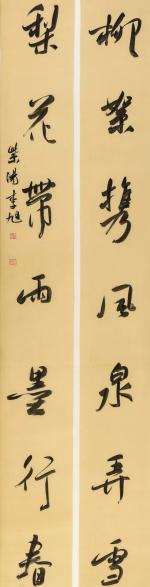 柳絮携風泉弄雪
梨花帶雨墨行春
李旭